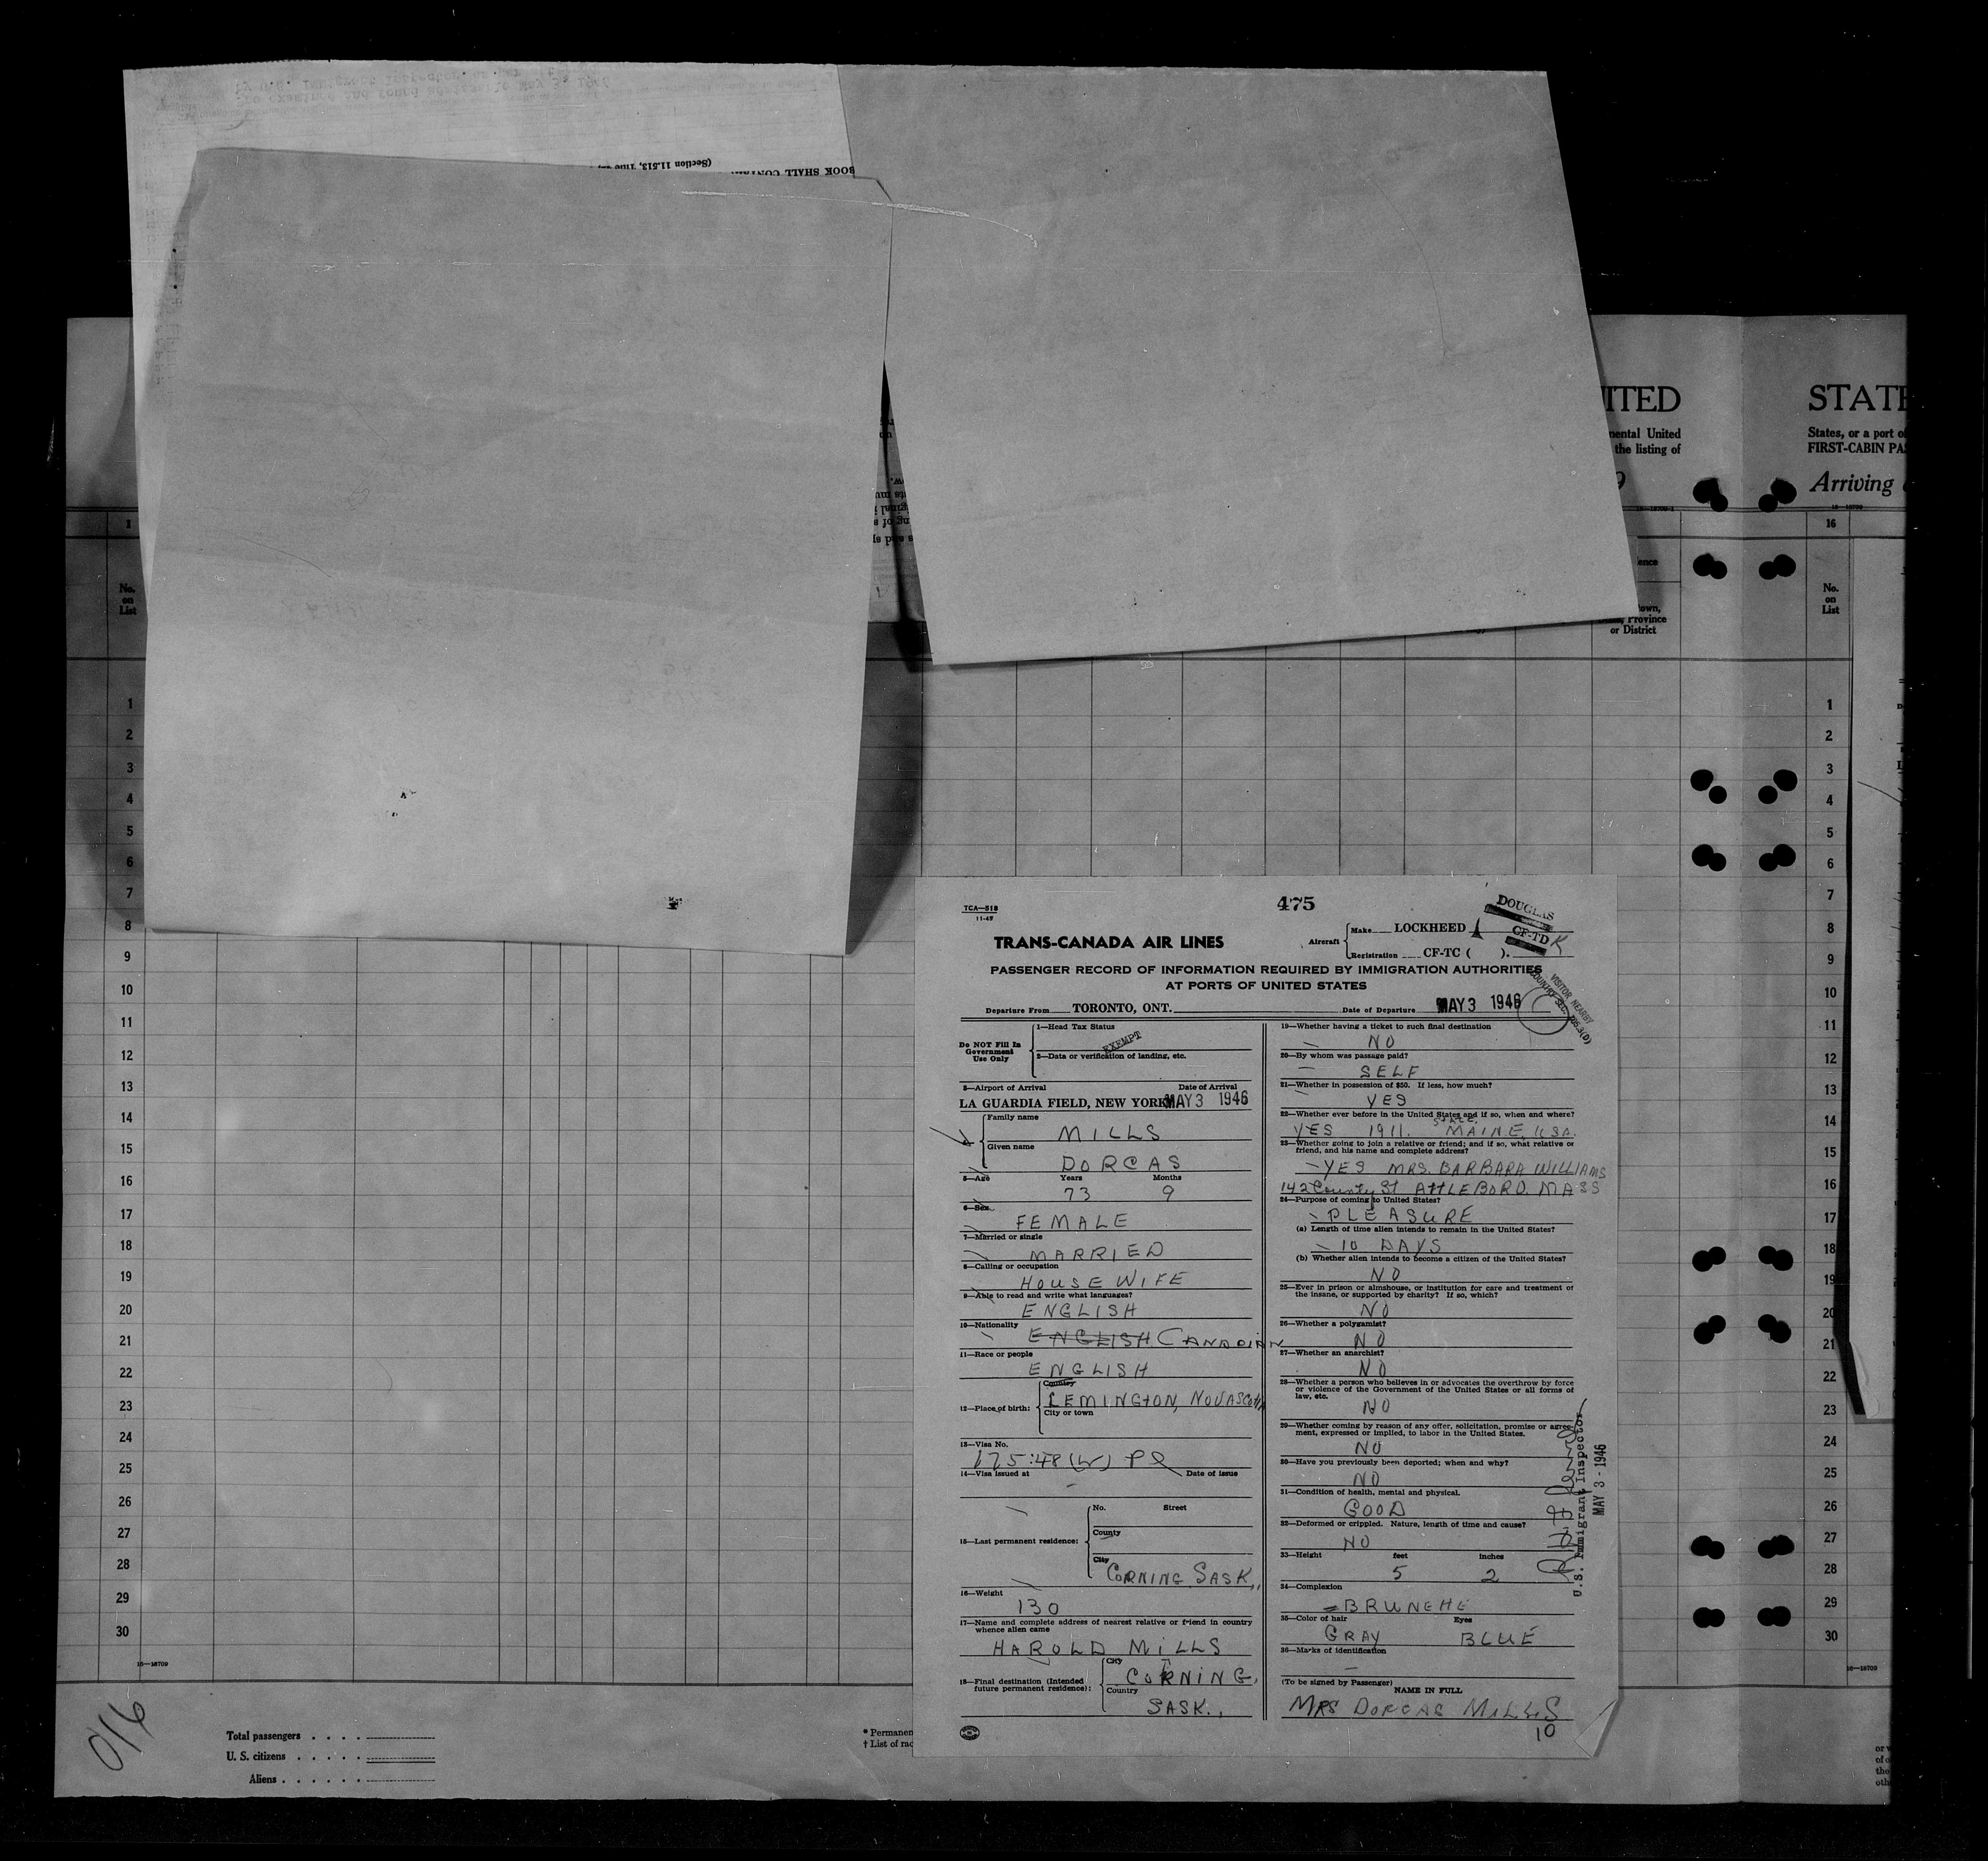 (Section 11.513, Title
BOOK SHALL
ITED
nental United
the listing of
STATE
States, or a port o
FIRST-CABIN PA
Arriving
1
16
No.
on
List
ence
own,
Province
or District
No.
on
List
1
2
3
4
5
6
7
8
9
10
11
12
13
14
15
16
17
18
19
20
21
22
23
24
25
26
27
28
29
30
16—18709
Total passengers . . . .
U. S. citizens . . . . .
Aliens . . . . . .
* Permanen
† List of rac
TCA—518
11-45
475
TRANS-CANADA AIR LINES
Aircraft
Make LOCKHEED
Registration CF-TC ( ).
DOUGLAS
CF-TD K
PASSENGER RECORD OF INFORMATION REQUIRED BY IMMIGRATION AUTHORITIES
AT PORTS OF UNITED STATES
Departure From TORONTO, ONT.
Date of Departure MAY 3 1946
VISITOR NEARBY
COUNTRY SEC. 105.3(D)
Do NOT Fill In
Government
Use Only
1—Head Tax Status
EXEMPT
2—Data or verification of landing, etc.
3—Airport of Arrival Date of Arrival
LA GUARDIA FIELD, NEW YORK MAY 3 1946
Family name
MILLS
Given name
DORCAS
5—Age Years Months
73 9
6—Sex
FEMALE
7—Married or single
MARRIED
8—Calling or occupation
HOUSE WIFE
9—Able to read and write what languages?
ENGLISH
10—Nationality
ENGLISH CANADIAN
11—Race or people
ENGLISH
12—Place of birth:
Country
LEMINGTON, NOVASCOTIA
City or town
13—Visa No.
175:48 (W)
14—Visa issued at Date of issue
15—Last permanent residence:
No. Street
County
City
CORNING SASK,
16—Weight
130
17—Name and complete address of nearest relative or friend in country
whence alien came
HAROLD MILLS
18—Final destination (Intended
future permanent residence):
City
CORNING,
Country
SASK.,
19—Whether having a ticket to such final destination
NO
20—By whom was passage paid?
SELF
21—Whether in possession of $50. If less, how much?
YES
22—Whether ever before in the United States and if so, when and where?
STATE
YES 1911. MAINE, USA.
23—Whether going to join a relative or friend; and if so, what relative or
friend, and his name and complete address?
YES MRS. BARBARA WILLIAMS
142 County St ATTLEBORO. MASS
24—Purpose of coming to United States?
PLEASURE
(a) Length of time alien intends to remain in the United States?
10 DAYS
(b) Whether alien intends to become a citizen of the United States?
NO
25—Ever in prison or almshouse, or institution for care and treatment of
the insane, or supported by charity? If so, which?
NO
26—Whether a polygamist?
NO
27—Whether an anarchist?
NO
28—Whether a person who believes in or advocates the overthrow by force
or violence of the Government of the United States or all forms of
law, etc.
NO
29—Whether coming by reason of any offer, solicitation, promise or agree-
ment, expressed or implied, to labor in the United States.
NO
30—Have you previously been deported; when and why?
NO
31—Condition of health, mental and physical.
GOOD
32—Deformed or crippled. Nature, length of time and cause?
NO
33—Height feet inches
5 2
34—Complexion
BRUNETTE
35—Color of hair Eyes
GRAY BLUE
36—Marks of identification
(To be signed by Passenger)
NAME IN FULL
MRS DORCAS MILLS
10
U.S. Immigrant Inspector
MAY 3 - 1946
1
2
3
4
5
6
7
8
9
10
11
12
13
14
15
16
17
18
19
20
21
22
23
24
25
26
27
28
29
30
16—18709